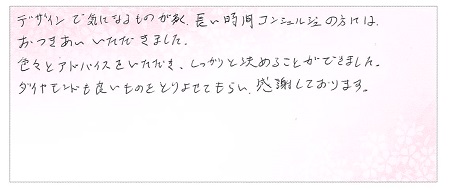 デザインで気になるものが多く、長い時間コンシェルジュの方には、
おつきあいいただきました。
色々とアドバイスをいただき、しっかりと決めることができました。
ダイヤモンドも良いものをとりよせてもらい、感謝しております。